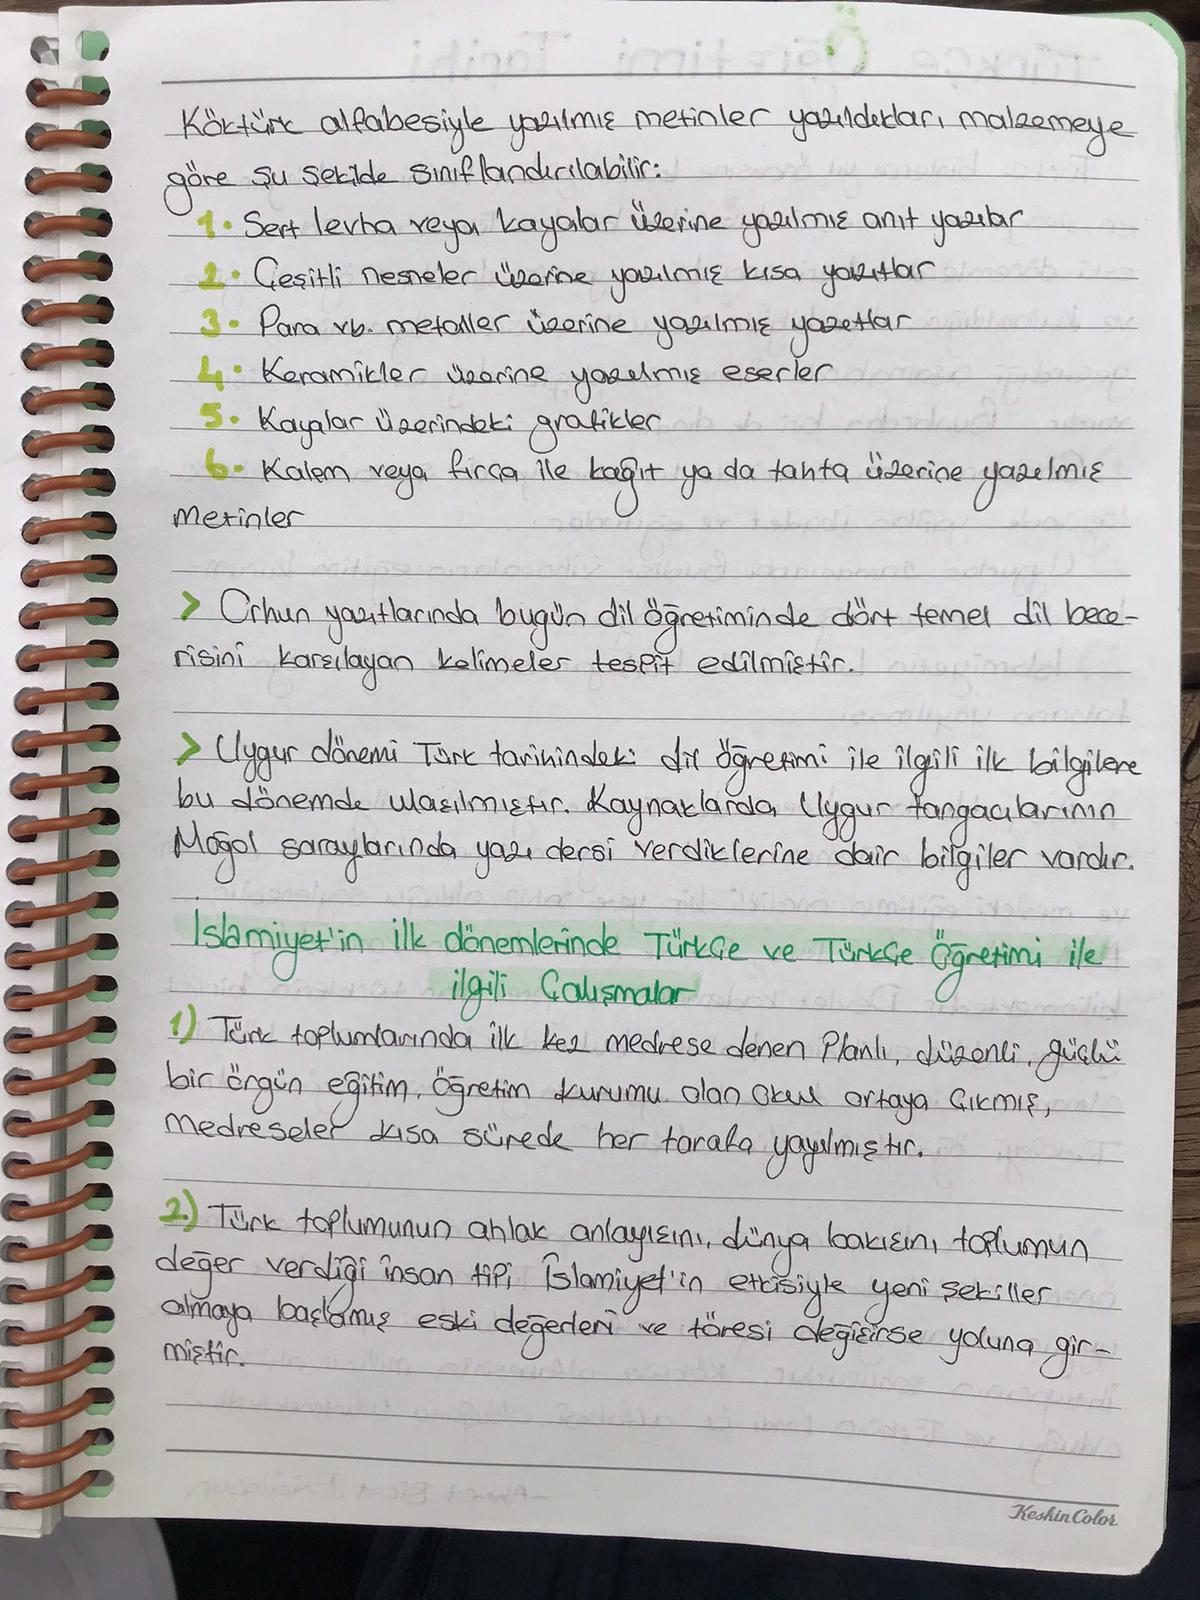 Köktürk alfabesiyle yazılmış metinler yazıldıkları malzemeye
göre şu şekilde sınıflandırılabilir:
1. Sert levha veya kayalar üzerine yazılmış anıt yazılar
2. Çeşitli nesneler üzerine yazılmış kısa yazıtlar
3. Para vb. metaller üzerine yazılmış yazıtlar
4. Keramikler üzerine yazılmış eserler
5. Kayalar üzerindeki grafikler
6. Kalem veya fırça ile kağıt ya da tahta üzerine yazılmış
metinler
> Orhun yazıtlarında bugün dil öğretiminde dört temel dil bece-
risini karşılayan kelimeler tespit edilmiştir.
> Uygur dönemi Türk tarihindeki dil öğretimi ile ilgili ilk bilgilere
bu dönemde ulaşılmıştır. Kaynaklarda Uygur tangacılarının
Moğol saraylarında yazı dersi verdiklerine dair bilgiler vardır.
İslamiyet'in ilk dönemlerinde Türkçe ve Türkçe Öğretimi ile
ilgili Çalışmalar
1) Türk toplumlarında ilk kez medrese denen planlı, düzenli, güçlü
bir örgün eğitim, öğretim kurumu olan okul ortaya çıkmış,
medreseler kısa sürede her tarafa yayılmıştır.
2) Türk toplumunun ahlak anlayışını, dünya bakışını, toplumun
değer verdiği insan tipi İslamiyet'in etkisiyle yeni şekiller
almaya başlamış eski değerleri ve töresi değişirse yoluna gir-
miştir.
KeskinColor